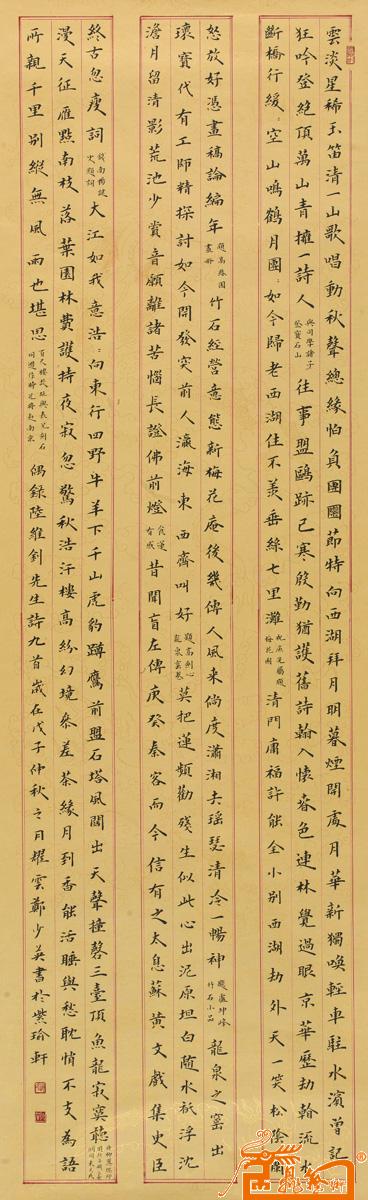 雲淡星稀玉笛清一山歌唱動秋聲總緣怕負團圞節特向西湖拜月明暮煙開處月華新獨喚輕車駐水濱曾記
狂吟登絶頂萬山青擁一詩人與同學諸子登寶石山往事盟鷗跡已寒殷勤猶護舊詩翰入懷春色連林覺過眼京華歷劫翰流水
斷橋行緩緩空山鳴鶴月團團如今歸老西湖住不羨垂絲七里灘清門庸福許能全小別西湖劫外天一笑松陰
怒放好憑畫稿論編年竹石經營意態新梅花庵後幾傳人風來倘度瀟湘去瑶瑟清泠一暢神龍泉之窯出
瓌寶代有工師精探討如今開發突前人瀛海東西齊叫好莫把蓮頻勸殘生似此心出泥原坦白隨水祇浮沈
澹月留清影荒池少賞音願離諸苦惱長證佛前燈昔聞盲左傳庚癸秦客而今信有之太息蘇黄文戲集史臣
終古忽瘦詞大江如我意浩浩向東行四野牛羊下千山虎豹蹲鷹前盟石塔風闊出天聲撞磬三臺頂魚龍寂寞聽
漫天征雁點南枝落葉園林費護持夜寂忽驚秋浩汗樓高紛幻境參差茶緣月到香能活睡與愁耽悄不支爲語
所親千里別縱無風雨也堪思偶録陸維釗先生詩九首歲在戊子仲秋之月耀雲鄭少英書於紫瑜軒